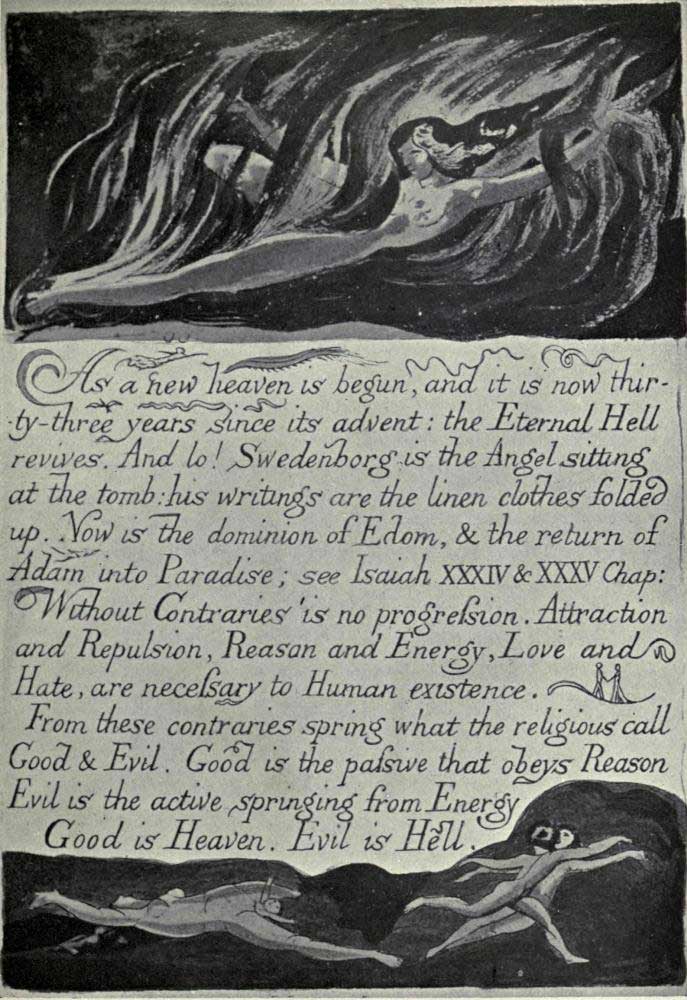 As a new heaven is begun, and it is now thir-
-ty-three years since its advent: the Eternal Hell
revives. And lo! Swedenborg is the Angel sitting
at the tomb: his writings are the linen clothes folded
up. Now is the dominion of Edom, & the return of
Adam into Paradise; see Isaiah XXXIV & XXXV Chap:
Without Contraries is no progreſsion. Attraction
and Repulsion, Reason and Energy, Love and
Hate, are neceſsary to Human existence.
From these contraries spring what the religious call
Good & Evil. Good is the paſsive that obeys Reason
Evil is the active springing from Energy
Good is Heaven. Evil is Hell.